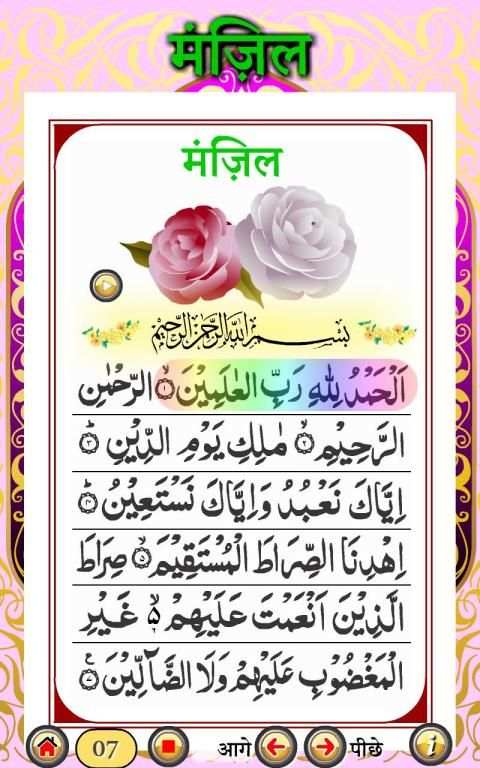 मंज़िल
मंज़िल
بِسْمِ اللهِ الرَّحْمٰنِ الرَّحِيْمِ
اَلْحَمْدُ لِلّٰهِ رَبِّ الْعٰلَمِيْنَ ۝۱ الرَّحْمٰنِ
الرَّحِيْمِ ۝۲ مٰلِكِ يَوْمِ الدِّيْنِ ۝۳ؕ
اِيَّاكَ نَعْبُدُ وَاِيَّاكَ نَسْتَعِيْنُ ۝۴ؕ
اِهْدِنَا الصِّرَاطَ الْمُسْتَقِيْمَ ۝۵ صِرَاطَ
الَّذِيْنَ اَنْعَمْتَ عَلَيْهِمْ ۵ غَيْرِ
الْمَغْضُوْبِ عَلَيْهِمْ وَلَا الضَّآلِّيْنَ ۝۷ع
07 आगे पीछे i